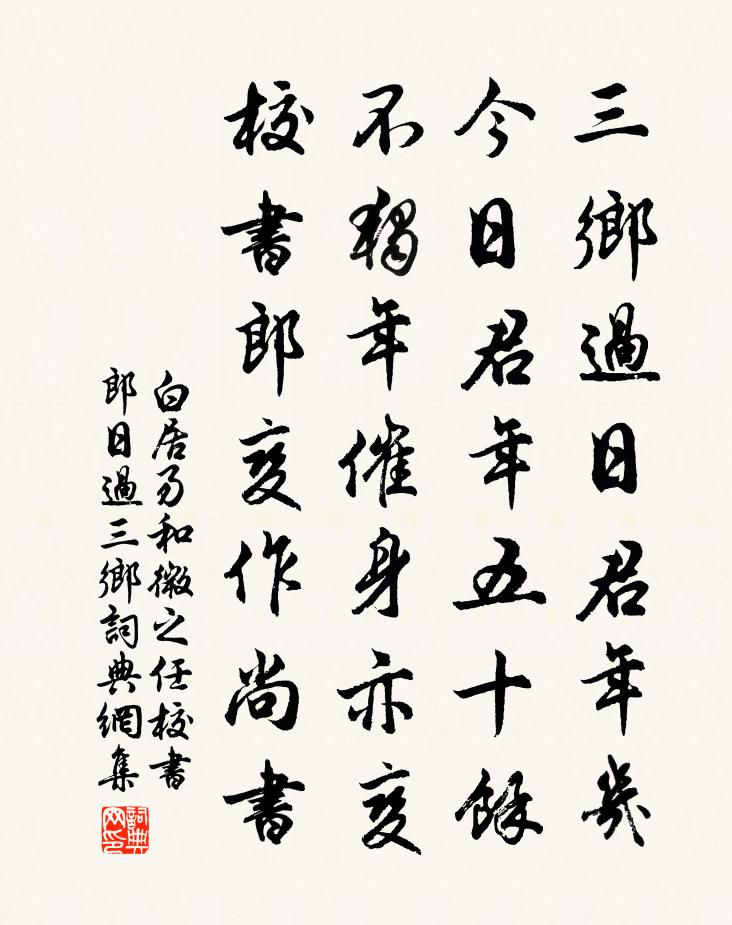 三鄉過日君年幾
今日君年五十餘
不獨年催身亦變
校書郎變作尚書
白居易和微之任校書
郎日過三鄉詞典網集
詞典网印